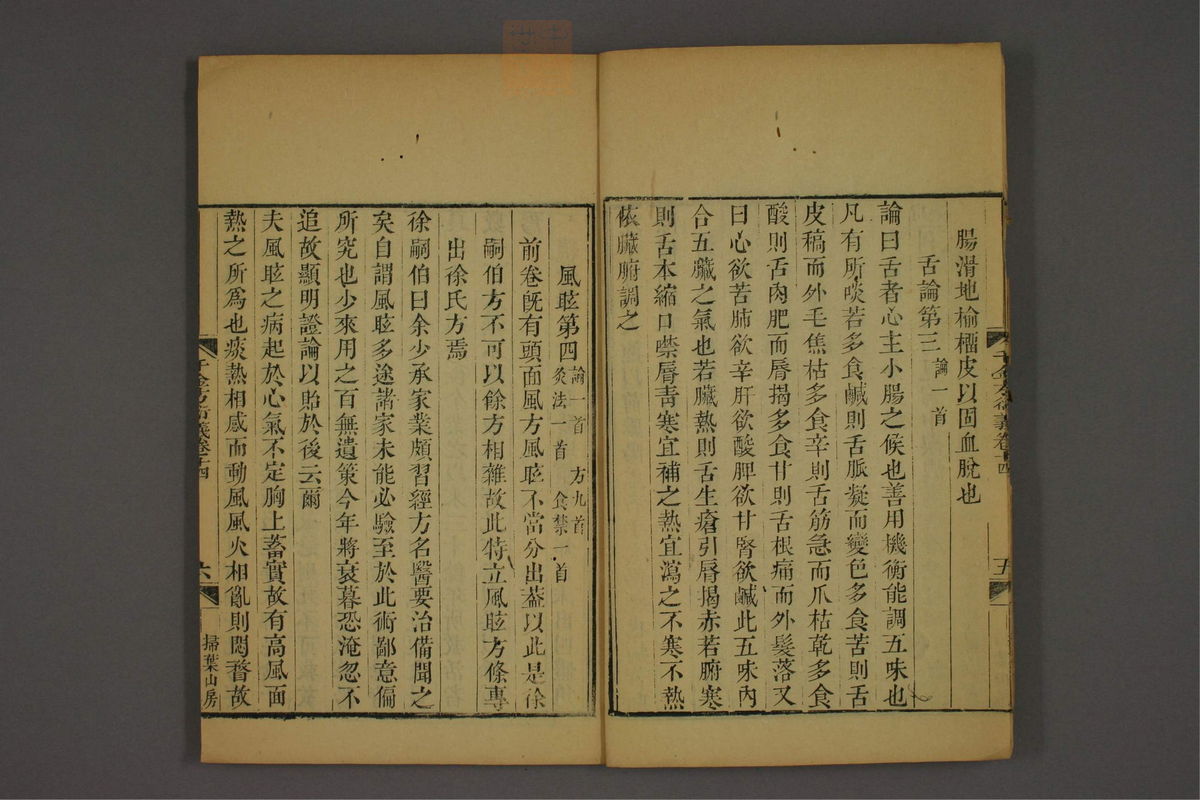 腸滑地榆櫺皮以固血脫也
舌論第三論一首
論曰舌者心主小腸之候也善用機衡能調五味也
凡有所啖若多食鹹則舌脈凝而變色多食苦則舌
皮稿而外毛焦枯多食辛則舌筋急而爪枯乾多食
酸則舌肉肥而脣揭多食甘則舌根痛而外髮落又
曰心欲苦肺欲辛肝欲酸脾欲甘腎欲鹹此五味內
合五臟之氣也若臟熱則舌生瘡引脣揭赤若腑寒
則舌本縮口噤脣靑寒宜補之熱宜瀉之不寒不熱
依臟腑調之
千金方衍義卷十四
五
風眩第四
論一首 方九首
灸法一首 食禁一首
前卷旣有頭面風方風眩不當分出葢以此是徐
嗣伯方不可以餘方相雜故此特立風眩方條專
出徐氏方焉
徐嗣伯曰余少承家業頗習經方名醫要治備聞之
矣自謂風眩多途諸家未能必驗至於此術鄙意偏
所究也少來用之百無遺策今年將衰暮恐淹忽不
追故顯明證論以貽於後云爾
夫風眩之病起於心氣不定胸上蓄實故有高風面
熱之所爲也痰熱相感而動風風火相亂則悶瞀故
千金方衍義卷十四
六
掃葉山房